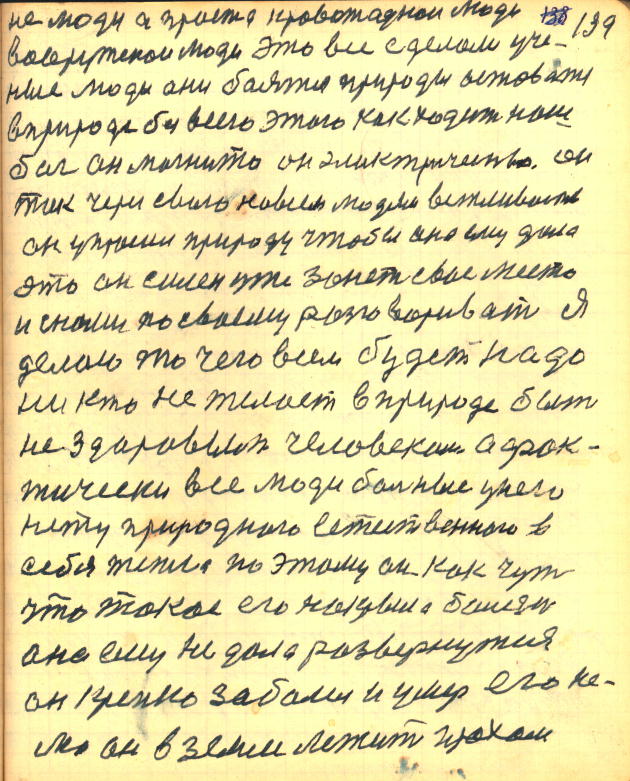 138 139
не люди а проста кровожаднои люди
вооружонои люди это все сделали уче-
ные люди они баятся природы оставатся
в природе бы всего этого как ходит наш
бог он магнито он электричество. он
так через свою ко всем людям вежливость
он упросил природу чтобы она ему дала
это он силен уже занять свое место
и снами по своему разговориват Я
делаю то чего всем будет надо
ни кто не желает в природе быть
не здаровым человеком а фак-
тически все люди больные у него
нету природного естественного в
себя тепла по этому он как чуть
что такое его накрыла болезнь
она ему не дала развернутся
он крепко заболел и умер его не-
ма он в земле лежит прахом